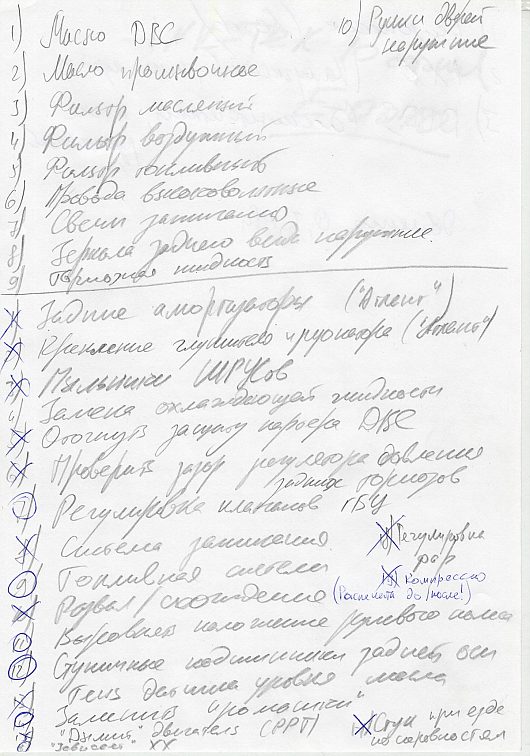 1) Масло ДВС
10) Ручки дверей
наружние
2) Масло промывочное
3) Фильтр масляный
4) Фильтр воздушный
5) Фильтр топливный
6) Провода высоковольтные
7) Свечи зажигания
8) Зеркала заднего вида наружние.
9) Тормозная жидкость
Задние амортизаторы ("Атлент")
Крепление глушителя и резонатора ("Атлент")
Пыльники ШРУСов
Замена охлаждающей жидкости
Отогнуть защиту картера ДВС
Проверить зазор регулятора давления
задних тормозов
Регулировка клапанов ГБЦ
Система зажигания
Регулировка
фар
Топливная система
Компрессию
Развал/схождение
(Распечатка до/после!)
Выровнять положение рулевого колеса
Ступичные подшипники задней оси
Течь датчика уровня масла
Заменить "ромашки"
"Дымит" двигатель (РРТ)
"Зависает" ХХ
Стук при езде
по неровностям